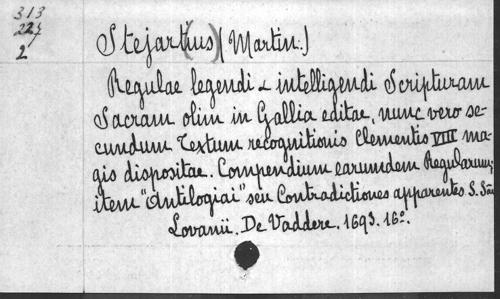 313
225
2
Stejart(ius) (Martin.)
Regulae legendi & intelligendi Scripturam
Sacram olim in Gallia editae, nunc vero se-
cundum Textum recognitionis Clementis VIII ma-
gis dispositae. Compendium earumdem Regularum;
item "Antilogiai" seu Contradictiones apparentes S. Sae
Lovanii. De Vaddere. 1693. 16º.